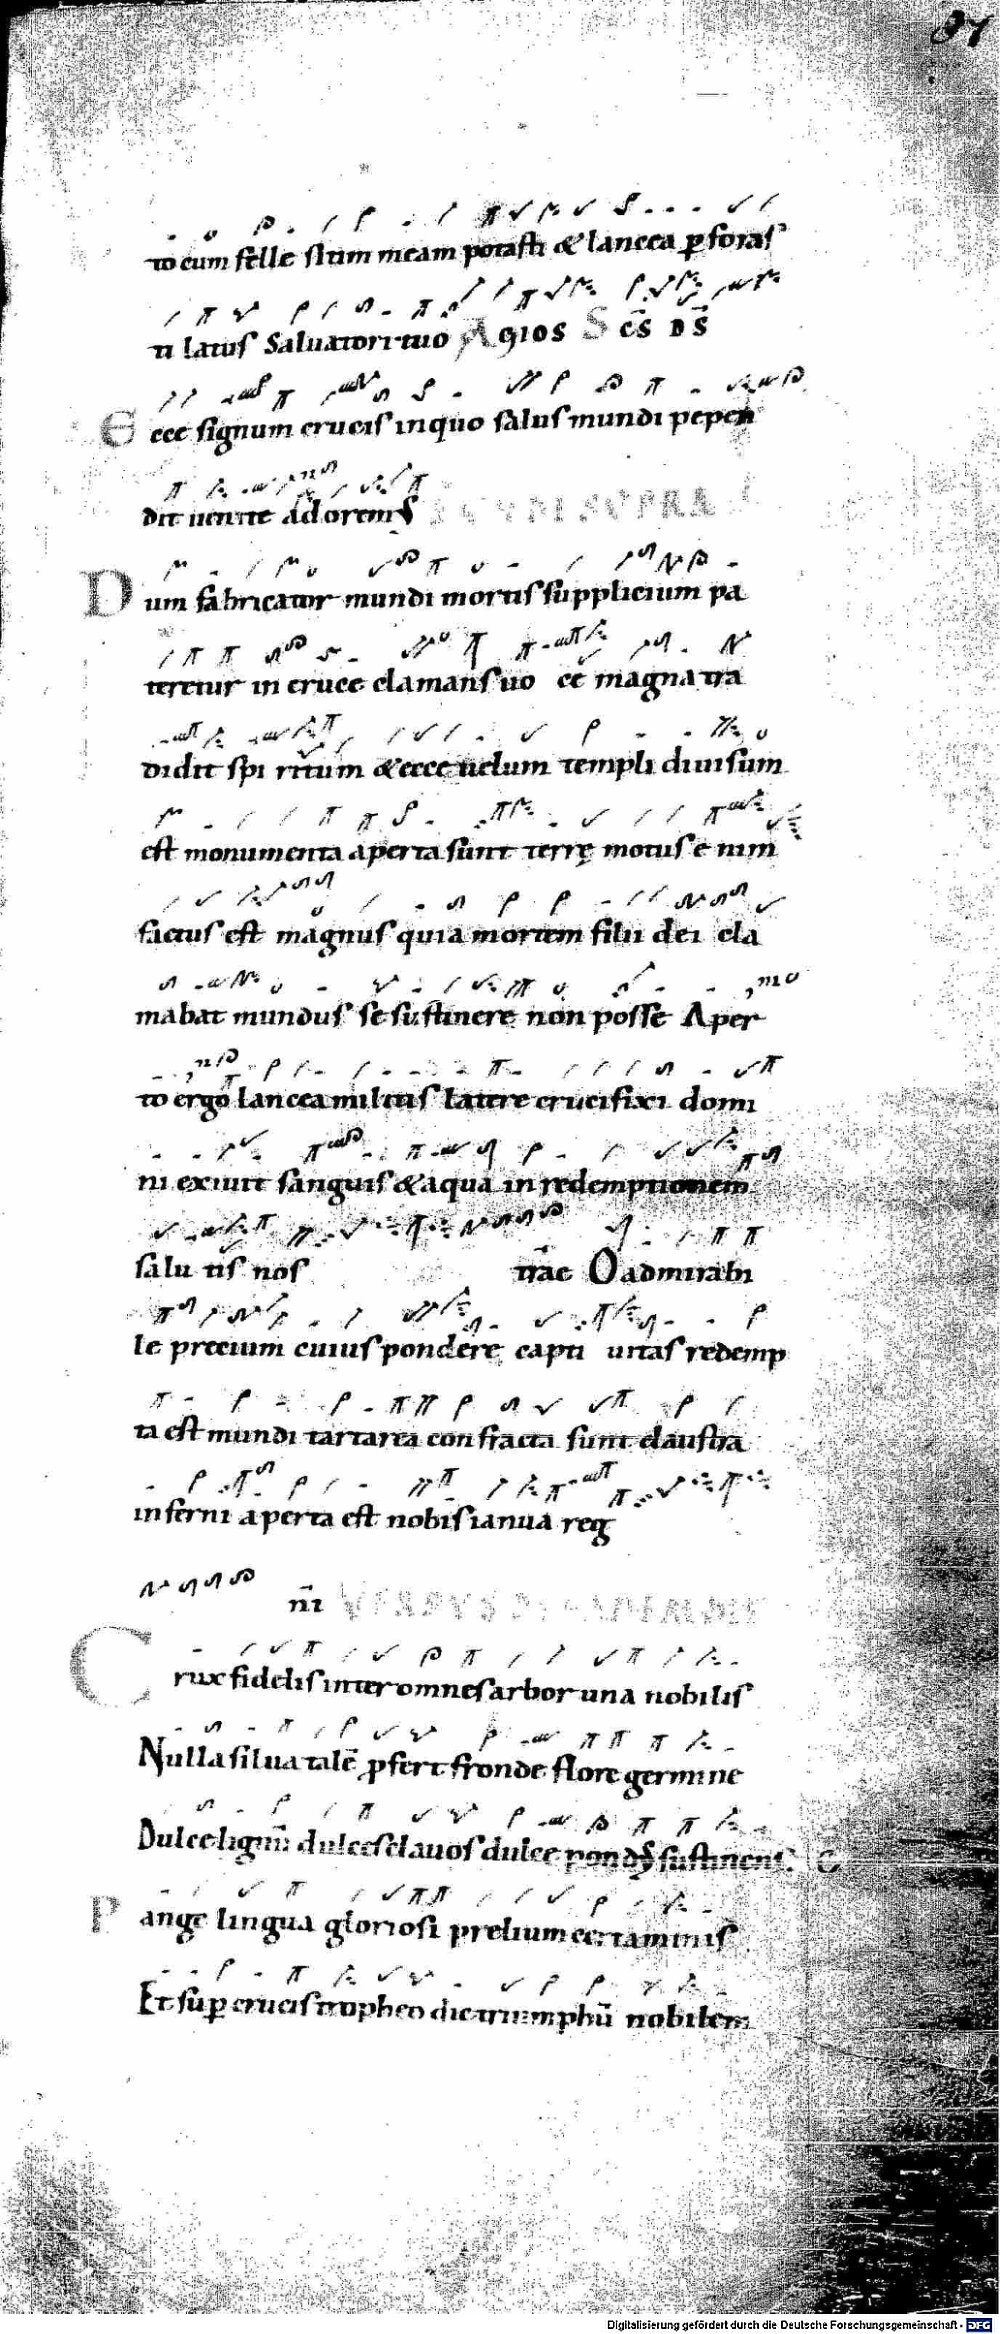 to cum felle sitim meam potasti & lancea ꝑforas
ti latus Salvatori tuo Agios Sc̄s ds̄
Ecce signum crucis inquo salus mundi pepen
dit uenite adorem̄s SUPRA
Dum fabricator mundi mortis supplicium pa
teretur in cruce clamans uo ce magna tra
didit spi ritum & ecce uelum templi diuisum
est monumenta aperta sunt terrę motus e nim
factus est magnus quia mortem filii dei cla
mabat mundus se sustinere non posse Aper
to ergo lancea militis latere crucifixi domi
ni exiuit sanguis & aqua in redemptionem
salu tis nos trae O admirabi
le precium cuius pondere capti uitas redemp
ta est mundi tartarea confracta sunt claustra
inferni aperta est nobis ianua reg
ni
Crux fidelis inter omnes arbor una nobilis
Nulla silua talē ꝓfert fronde flore germine
Dulce lignū dulces clauos dulce pondꝰ sustinens. C
Pange lingua gloriosi prelium certaminis
Et suꝑ crucis tropheo dic triumphū nobilem
Digitalisierung gefördert durch die Deutsche Forschungsgemeinschaft - DFG